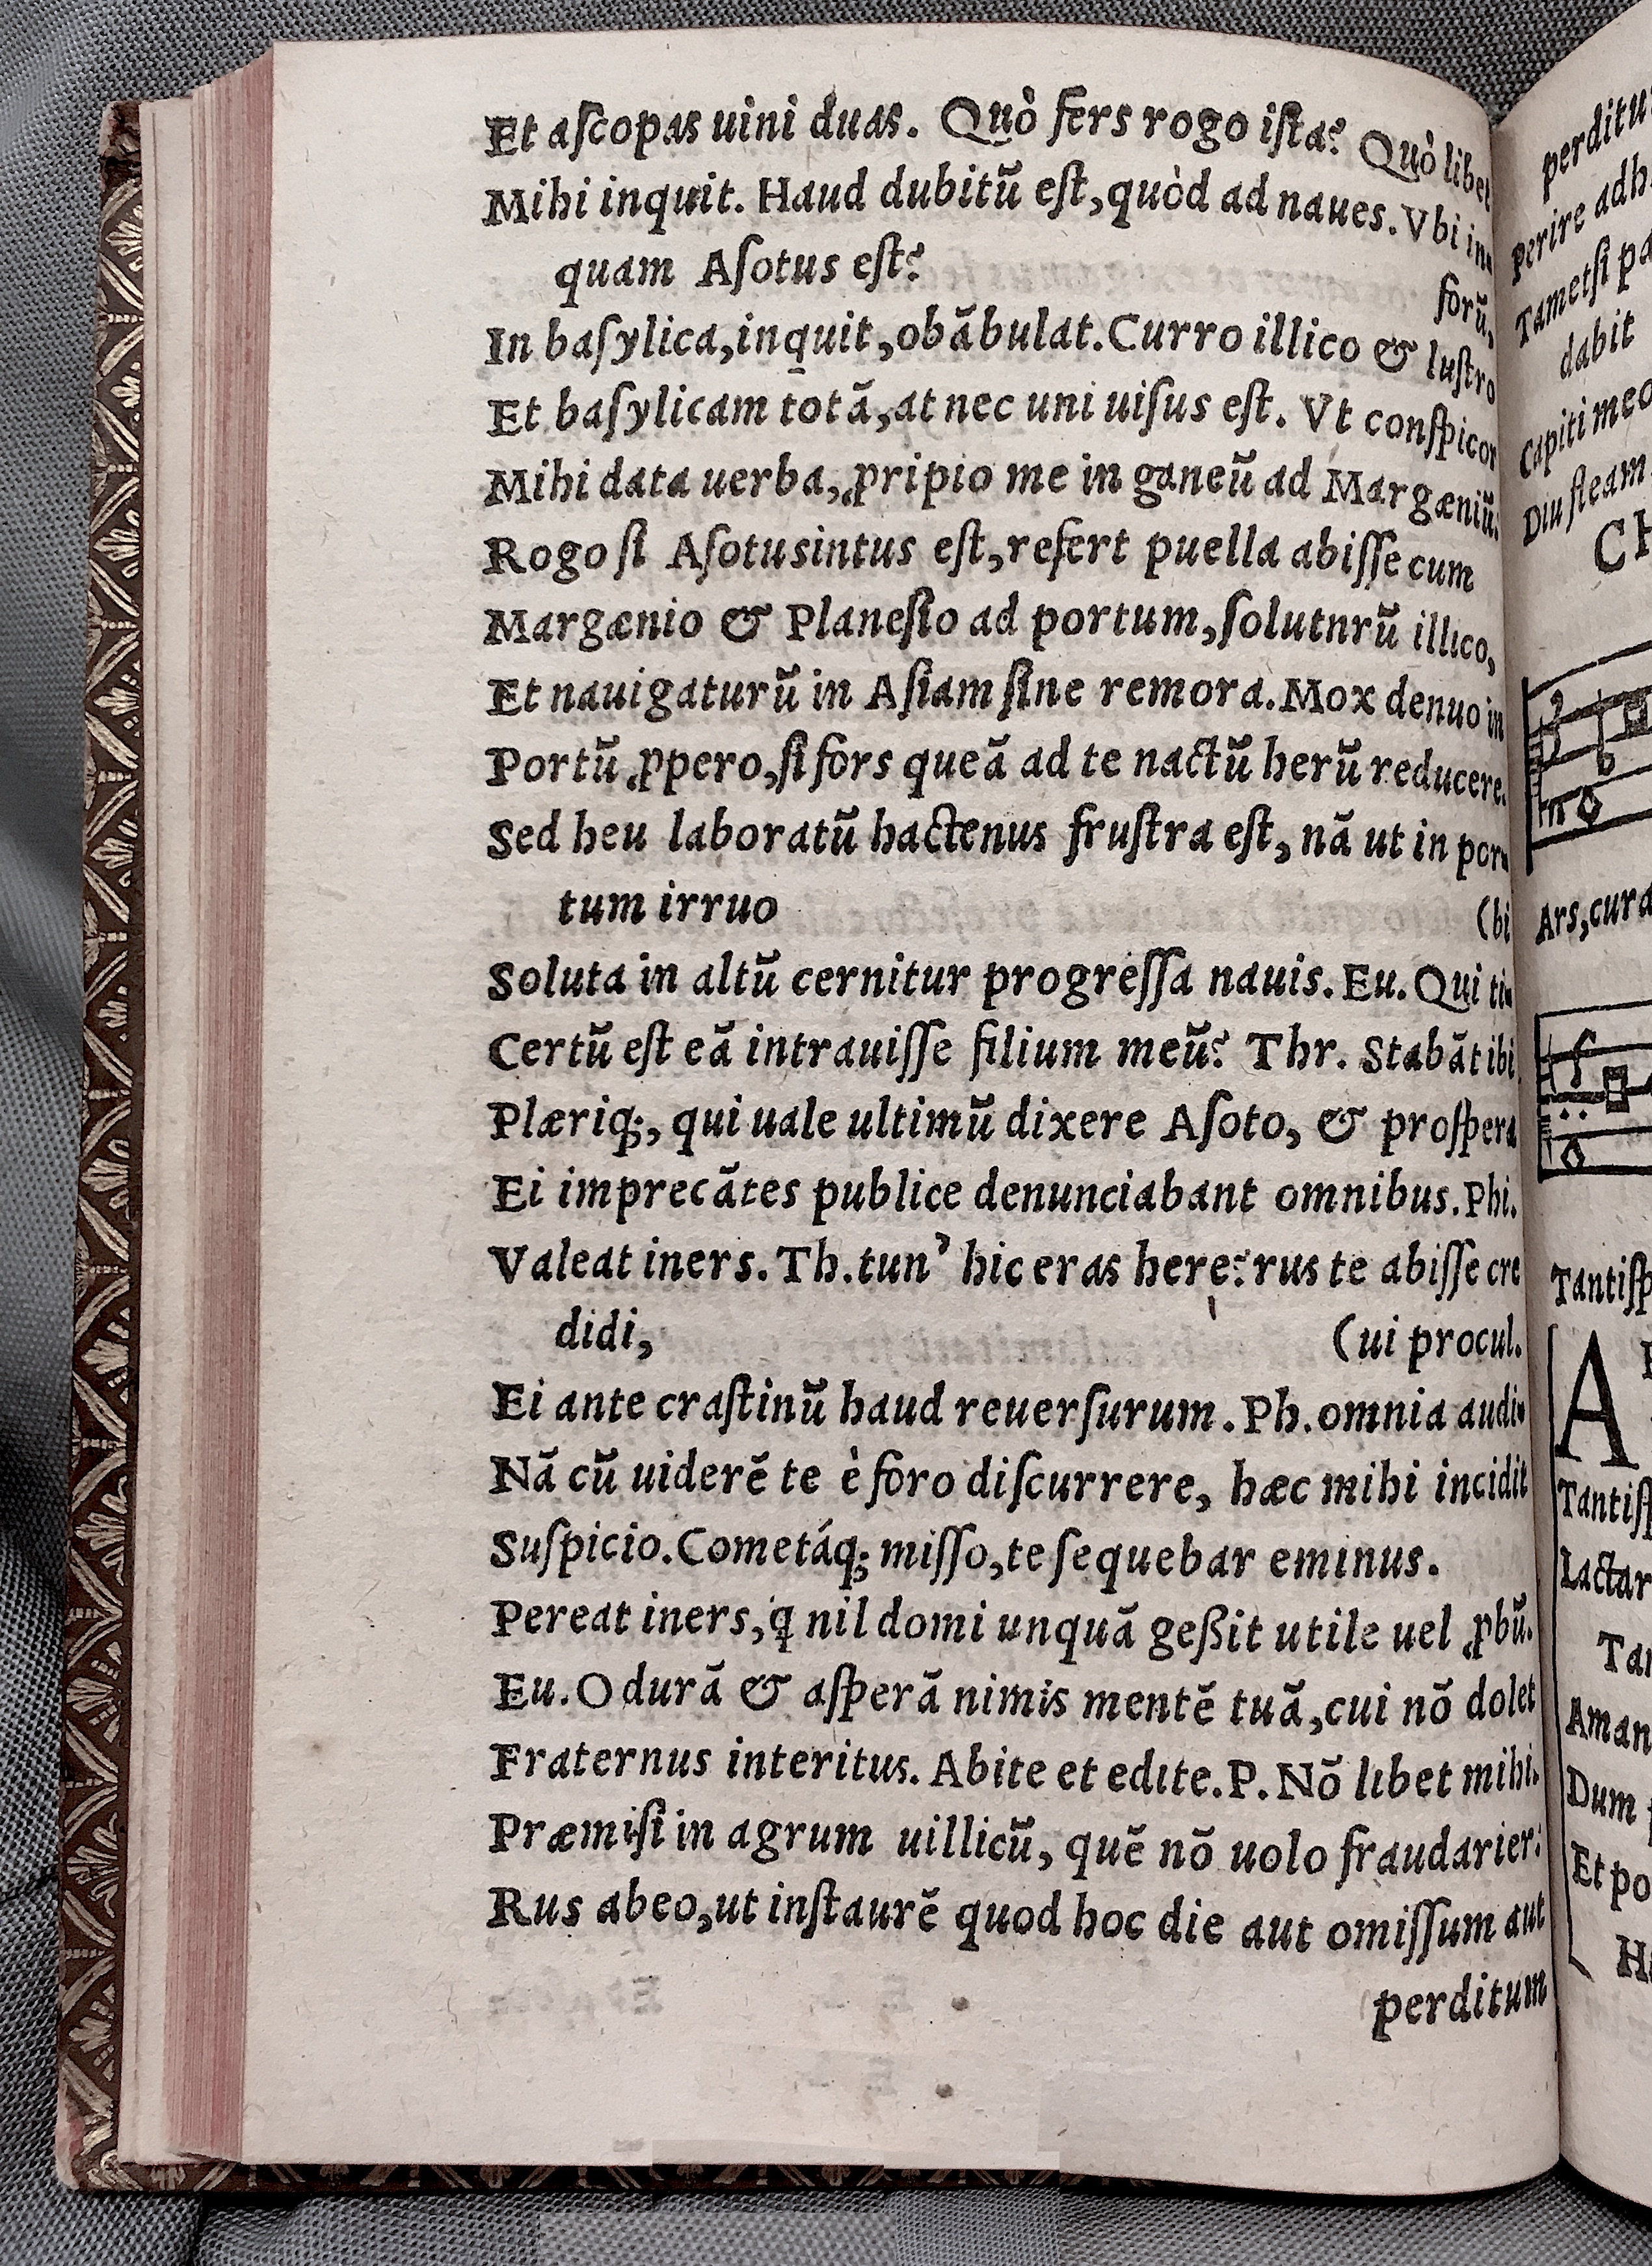 Et aſcopas uini duas. Quò fers rogo iſta? Quò libet
Mihi inquit. Haud dubitũ eſt, quòd ad naues. Vbi in-
quam Aſotus eſt?
forũ,
In baſylica, inquit, obãbulat. Curro illico & luſtro
Et baſylicam totã, at nec uni uiſus eſt. Vt conſpicor
Mihi data uerba, ꝓripio me in ganeũ ad Margæniũ:
Rogo ſi Aſotus intus eſt, refert puella abiſſe cum
Margænio & Planeſio ad portum, ſolutnrũ illico,
Et nauigaturũ in Aſiam ſine remora. Mox denuo in
Portũ ꝓpero, ſi fors queã ad te nactũ herũ reducere.
Sed heu laboratũ hactenus fruſtra eſt, nã ut in por-
tum irruo
(bi
Soluta in altũ cernitur progreſſa nauis. Eu. Qui ti-
Certũ eſt eã intrauiſſe filium meũ? Thr. Stabãt ibi
Plæriq;, qui uale ultimũ dixere Aſoto, & proſpera
Ei imprecãtes publice denunciabant omnibus. Phi.
Valeat iners. Th. tun’ hic eras here? rus te abiſſe cre
didi,
(ui procul.
Ei ante craſtinũ haud reuerſurum. Ph. omnia audi-
Nã cũ uiderẽ te è foro diſcurrere, hæc mihi incidit
Suſpicio. Cometáq; miſſo, te ſequebar eminus.
Pereat iners, q̃ nil domi unquã geßit utile uel ꝓbũ.
Eu. O durã & aſperã nimis mentẽ tuã, cui nõ dolet
Fraternus interitus. Abite et edite. P. Nõ libet mihi.
Præmiſi in agrum uillicũ, quẽ nõ uolo fraudarier:
Rus abeo, ut inſtaurẽ quod hoc die aut omiſſum aut
perditum
perditu
Perire adh
Tametſi pa
dabit
Capiti meo
Diu fleam
CH
Ars, cura
Tantiſp
A
Tantiſ
Lactar
Tan
Aman
Dum
Et po